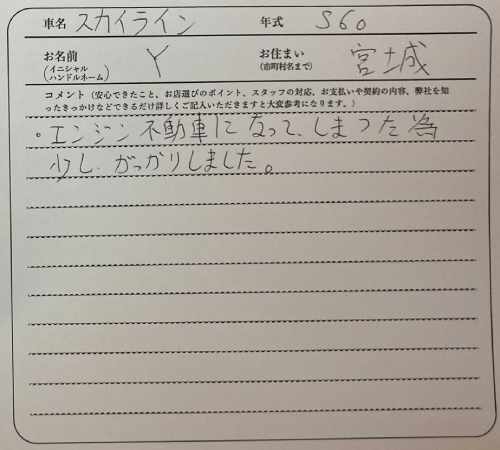 車名 スカイライン 年式 S60
お名前 (イニシャル ハンドルネーム) Y お住まい (市町村名まで) 宮城
コメント(安心できたこと、お店選びのポイント、スタッフの対応、お支払いや契約の内容、弊社を知
ったきっかけなどできるだけ詳しくご記入いただきますと大変参考になります。)
・エンジン不動車になって、しまった為
少し、がっかりしました。